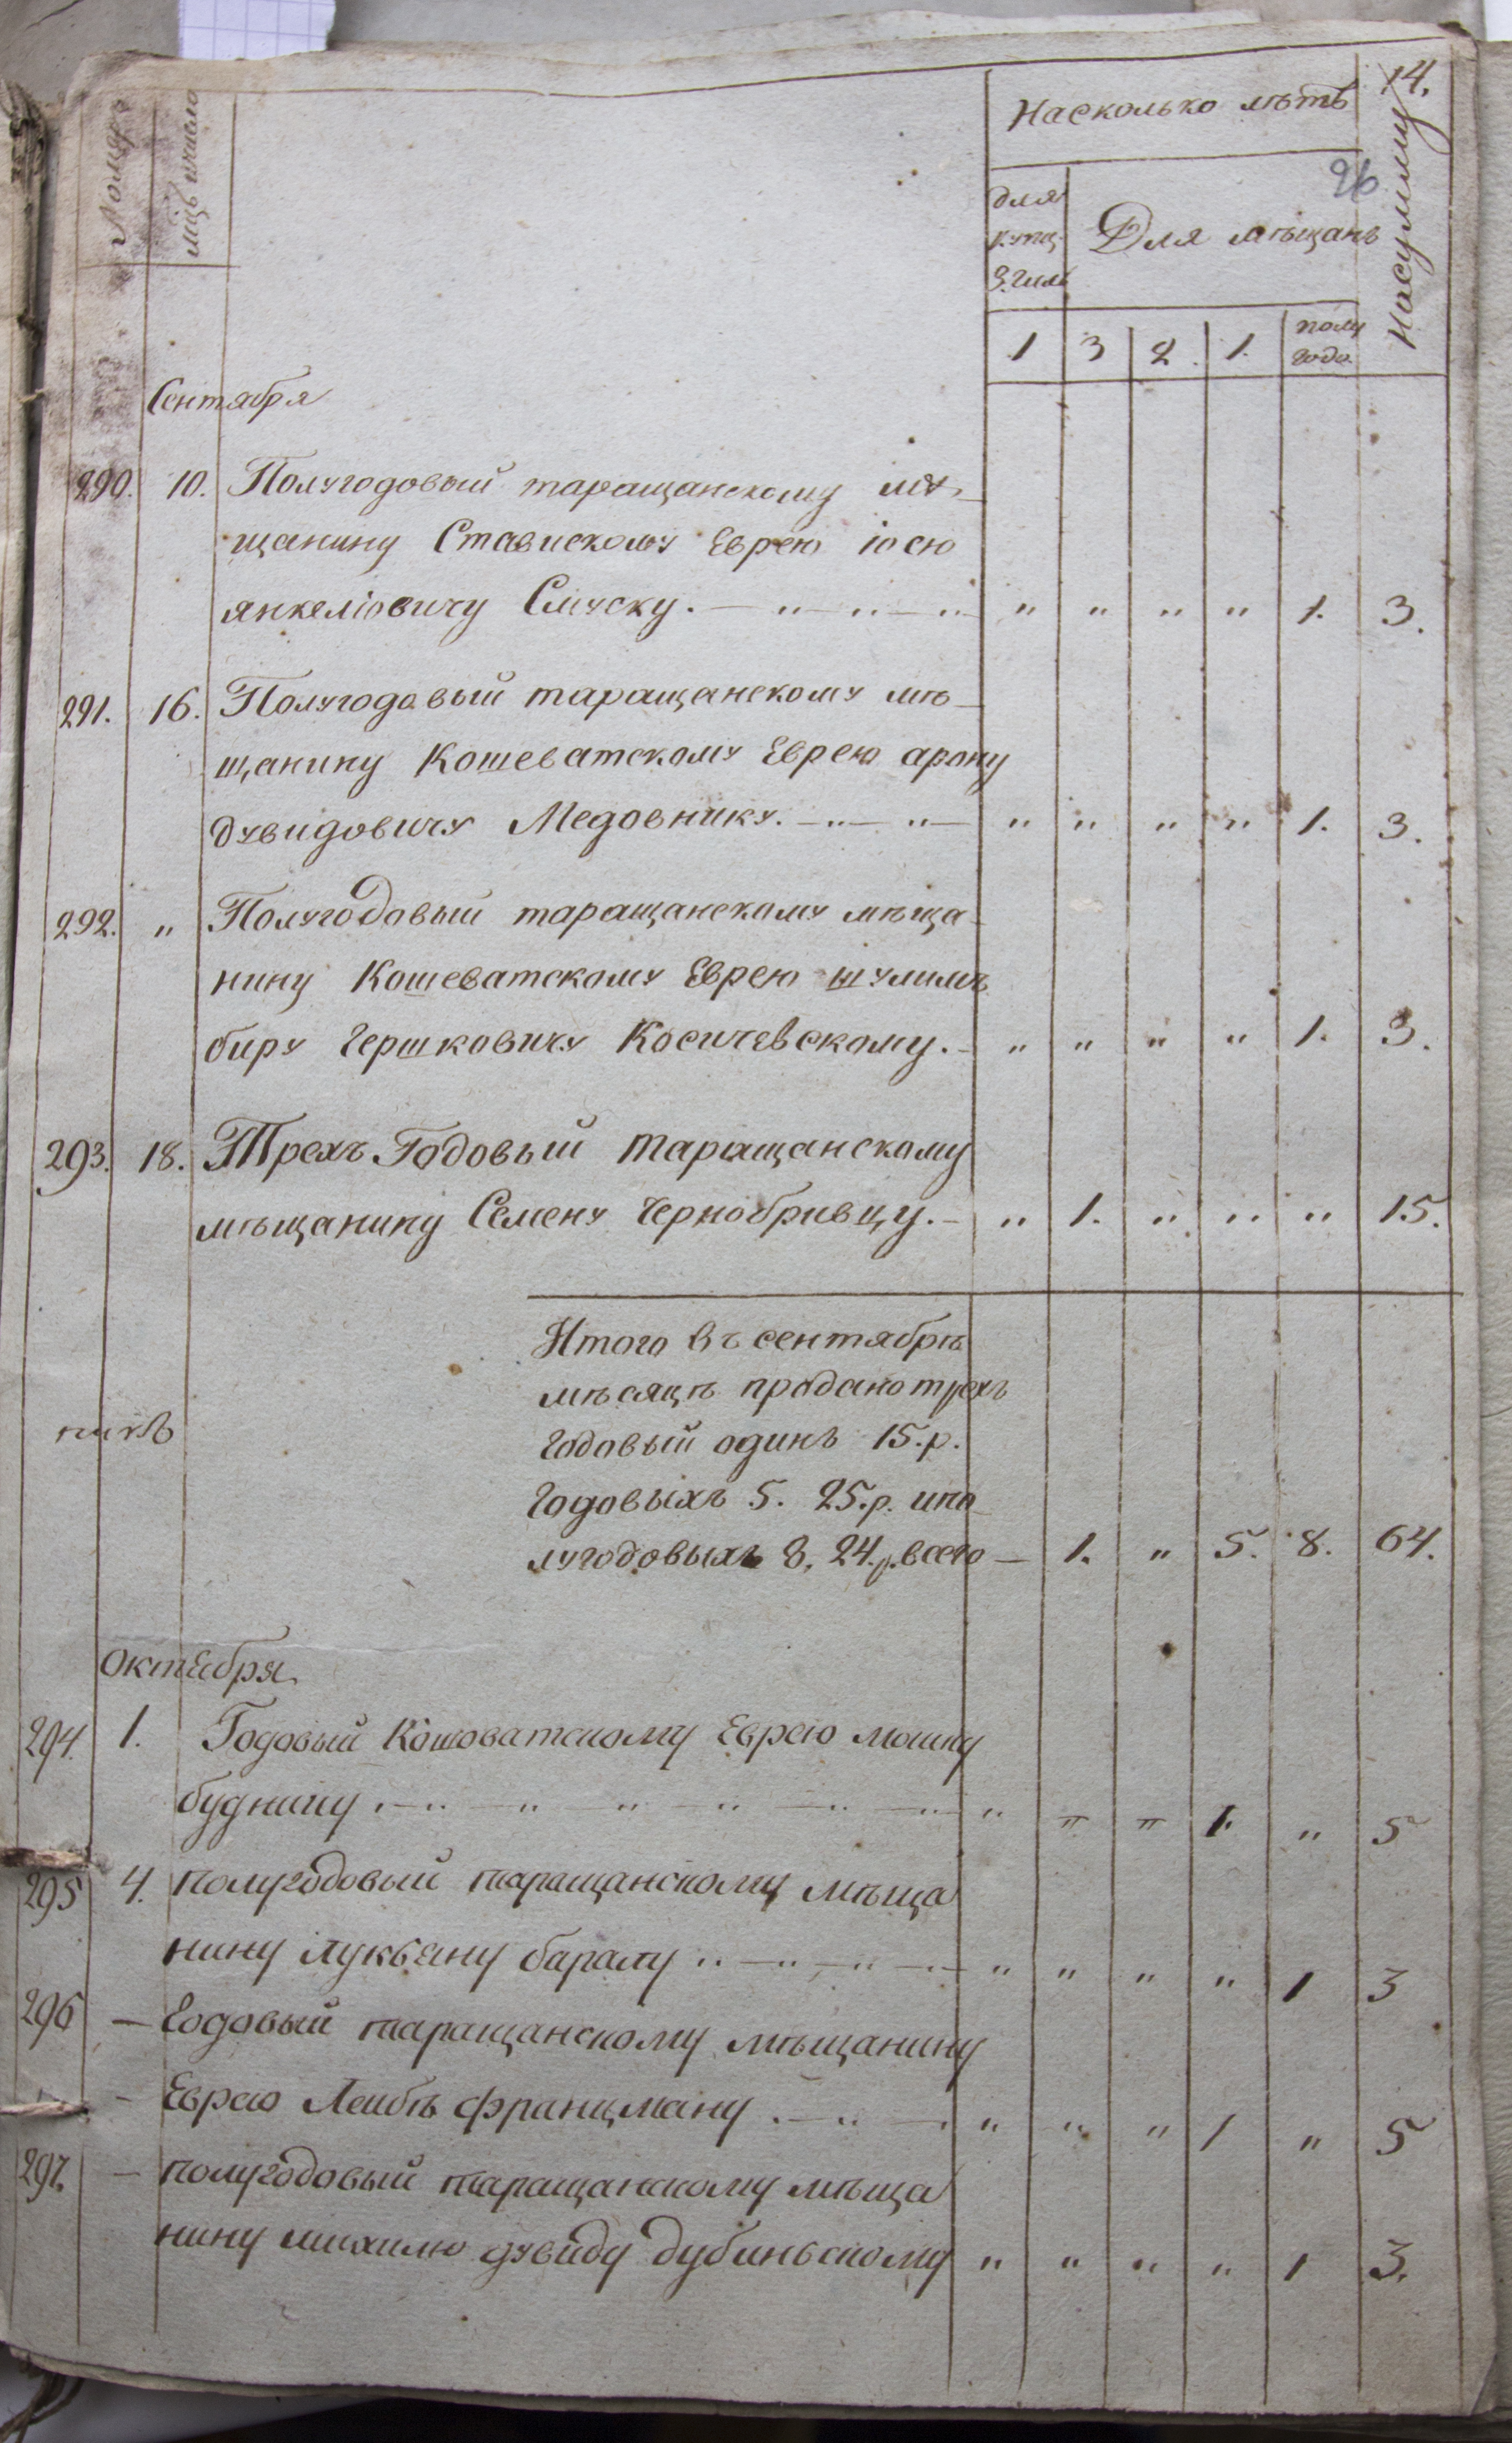 14.
26
Номера
мцъ и число
Насколько лѣтъ
На сумму
для
купц.
3. гиль
Для мѣщанъ
1 3 2. 1. полу
года.
Сентября
290. 10. Полугодовый таращанскому мѣ-
щанину Ставискому Еврею іосю
янкеліовичу Смуску. — " — " — " " " " " 1. 3.
291. 16. Полугодовый таращанскому мѣ-
щанину Кошеватскому Еврею арону
дувидовичу Медовнику. — " — " — " " " " 1. 3.
292. " Полугодовый таращанскому мѣща-
нину Кошеватскому Еврею шулимъ
биру Гершковичу Косичевскому. — " " " " 1. 3.
293. 18. Трехъ Годовый таращанскому
мѣщанину Семену Чернобривцу. — " 1. " " " 15.
Итого въ сентябрѣ
мѣсяцѣ продано трехъ
годовый одинъ 15. р.
годовыхъ 5. 25. р. и по-
лугодовыхъ 8. 24. р. всего — 1. " 5. 8. 64.
Октября
294. 1. Годовый Кошоватскому Еврею мошку
будничу . — " — " — " — " — " — " " " " 1. " 5
295 4. полугодовый таращанскому мѣща
нину лукьяну баралу " — " — " — " " " " " 1 3
296 — Годовый таращанскому мѣщанину
— Еврею Леибѣ францману . — " — . " " " 1 " 5
297. — полугодовый таращанскому мѣща
нину михилю дувиду дубиньскому " " " " 1 3.